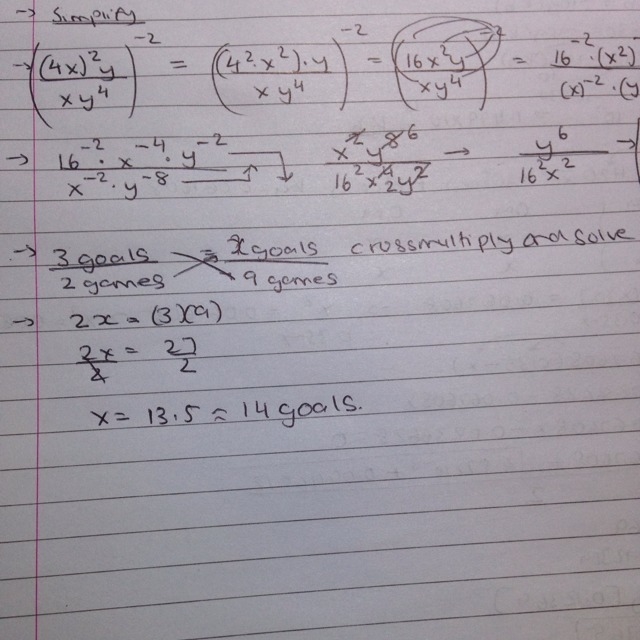 → Simplify
→ ((4x)²y / xy⁴)⁻² = ((4²·x²)·y / xy⁴)⁻² = (16x²y / xy⁴)⁻² = 16⁻²·(x²) / (x)⁻²·(y
→ 16⁻²·x⁻⁴·y⁻² / x⁻²·y⁻⁸ x²y⁸ ⁶ / 16²x⁴ ²y² → y⁶ / 16²x² →
→ 3 goals / 2 games = x goals / 9 games crossmultiply and solve
→ 2x = (3)(9)
2x / 2 = 27 / 2
x = 13.5 ≈ 14 goals.